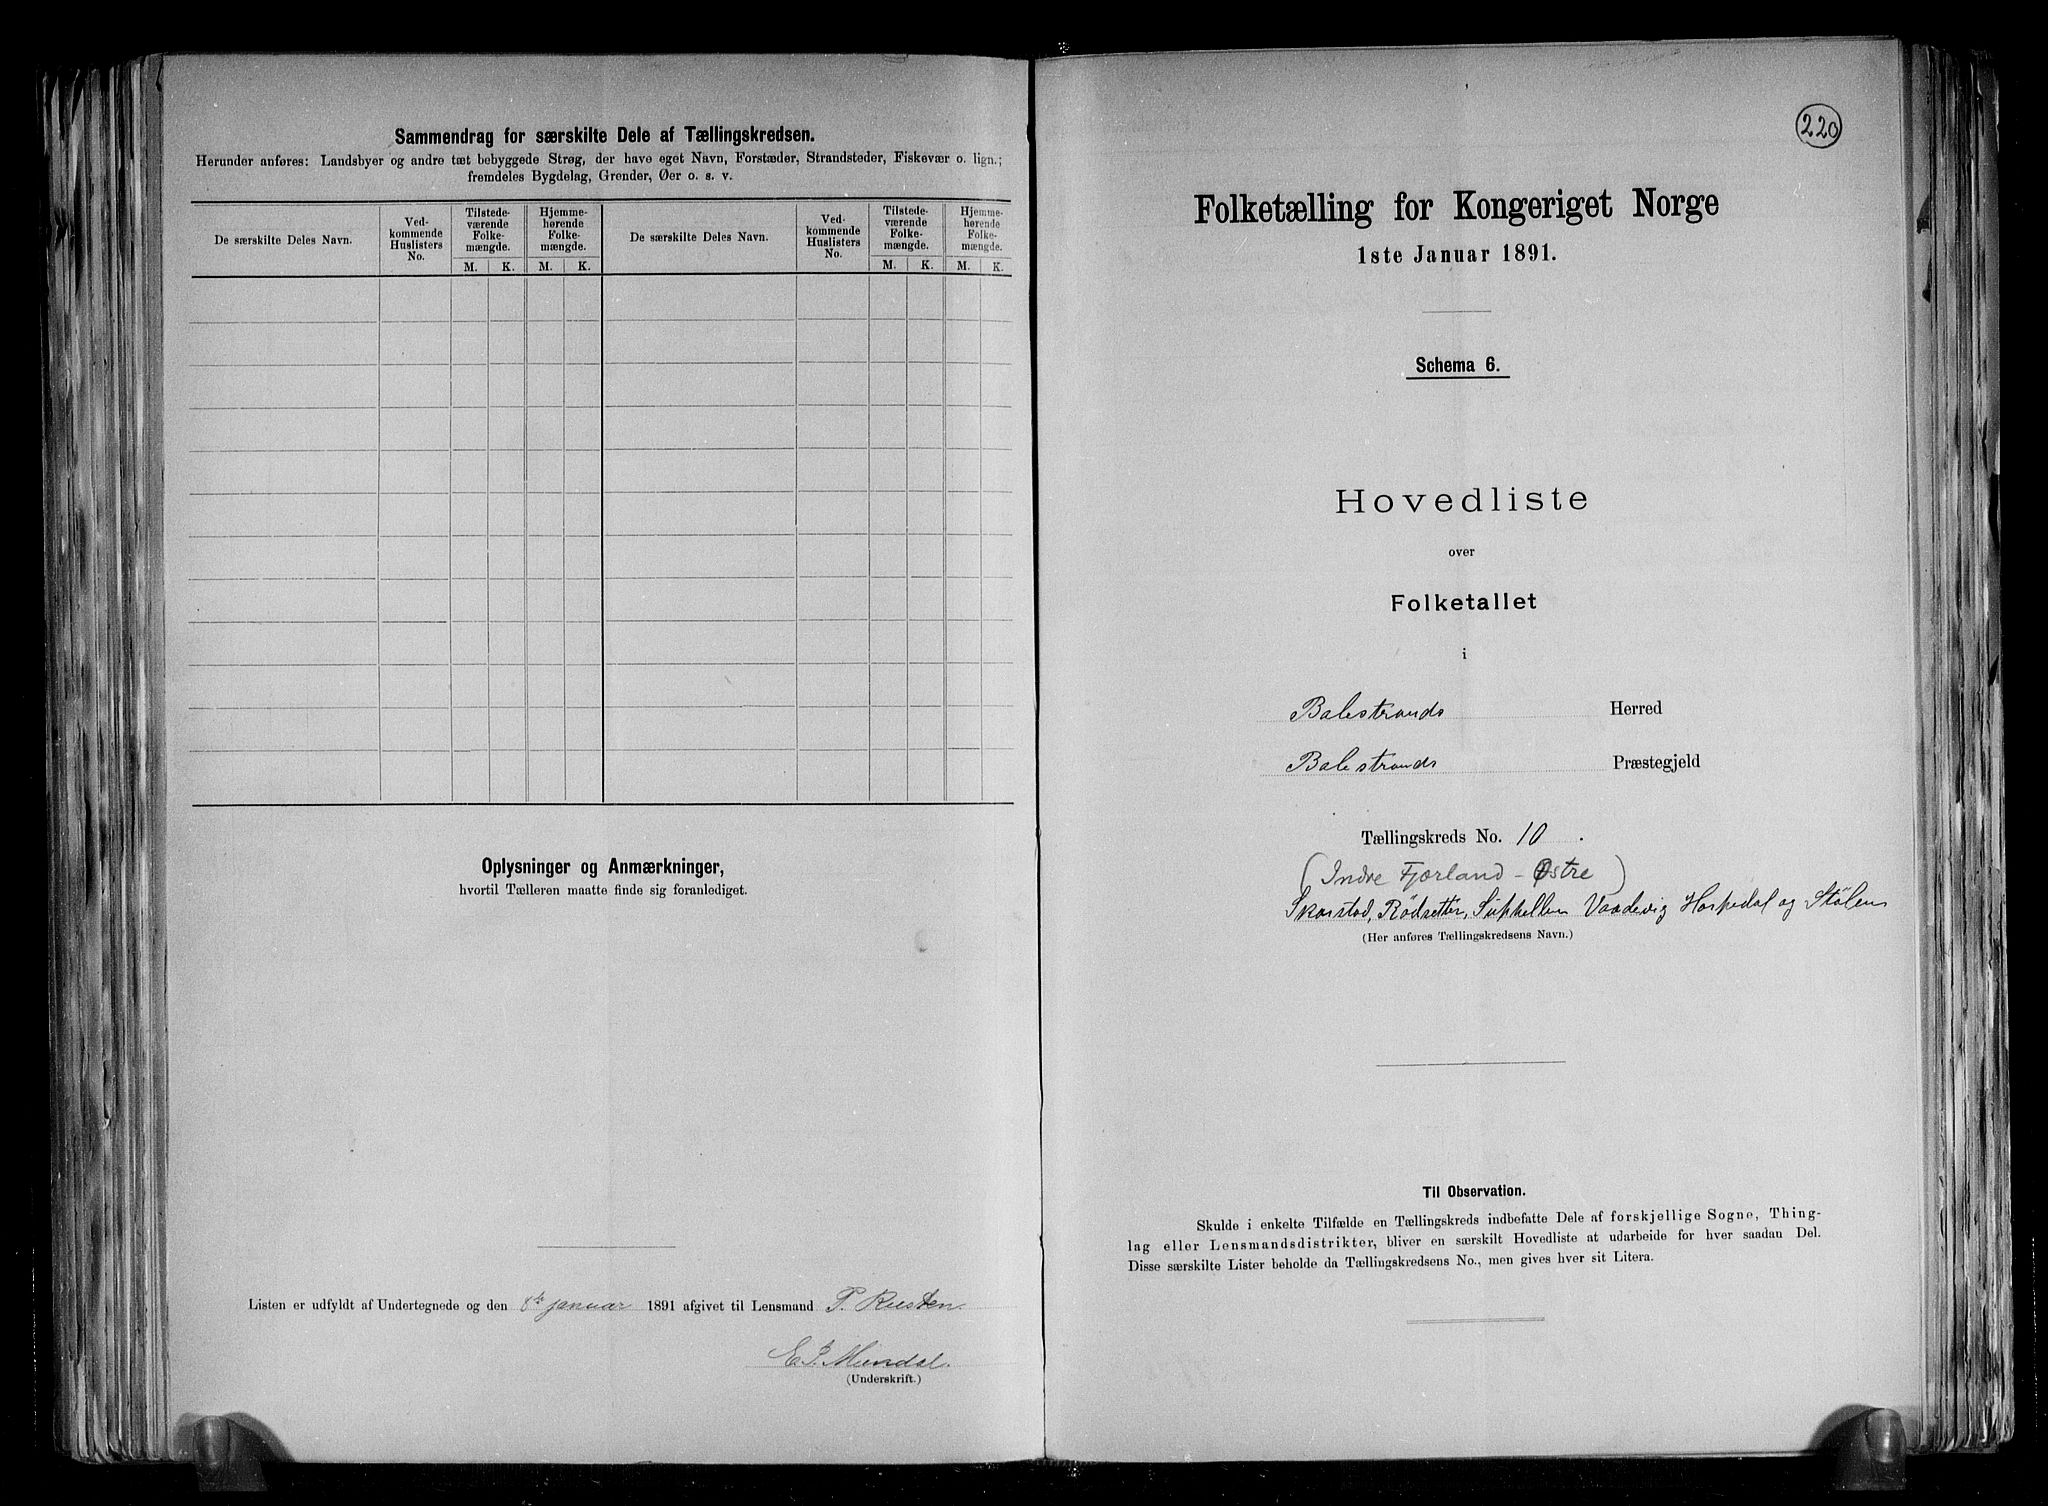 Sammendrag for særskilte Dele af Tællingskredsen.
Herunder anføres: Landsbyer og andre tæt bebyggede Strøg, der have eget Navn, Forstæder, Strandsteder, Fiskevær o. lign.;
fremdeles Bygdelag, Grender, Øer o. s. v.
De særskilte Deles Navn.
Ved-
kommende
Huslisters
No.
Tilstede-
værende
Folke-
mængde.
Hjemme-
hørende
Folke-
mængde.
De særskilte Deles Navn.
Ved-
kommende
Huslisters
No.
Tilstede-
værende
Folke-
mængde.
Hjemme-
hørende
Folke-
mængde.
M. K. M. K. M. K. M. K.
Oplysninger og Anmærkninger,
hvortil Tælleren maatte finde sig foranlediget.
Listen er udfyldt af Undertegnede og den 8de januar 1891 afgivet til Lensmand P. Rusten.
E. J. Mundal.
(Underskrift.)
220
Folketælling for Kongeriget Norge
1ste Januar 1891.
Schema 6.
Hovedliste
over
Folketallet
i
Balestrands Herred
Balestrands Præstegjeld
Tællingskreds No. 10.
(Indre Fjærland - Østre)
Skarstad, Rødsetter, Suphellen Vaadevig Horpedal og Stølen
(Her anføres Tællingskredsens Navn.)
Til Observation.
Skulde i enkelte Tilfælde en Tællingskreds indbefatte Dele af forskjellige Sogne, Thing-
lag eller Lensmandsdistrikter, bliver en særskilt Hovedliste at udarbeide for hver saadan Del.
Disse særskilte Lister beholde da Tællingskredsens No., men gives hver sit Litera.